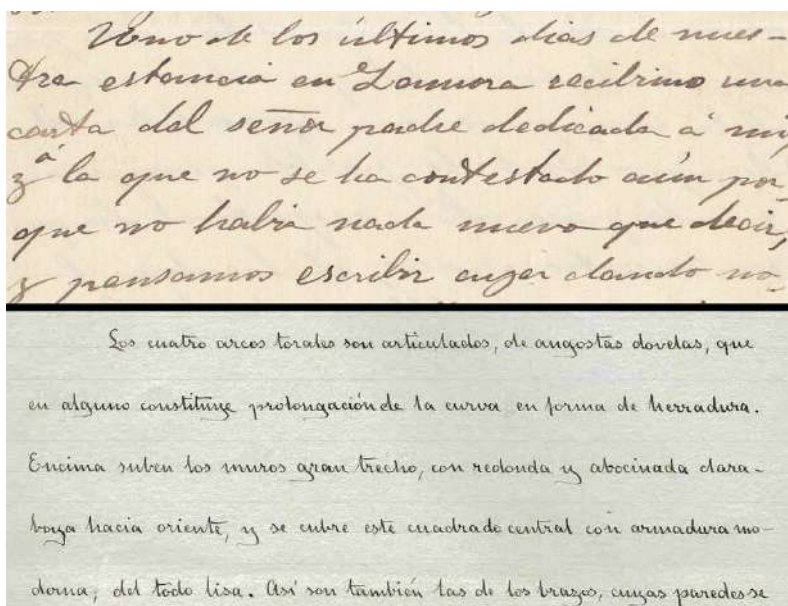 Uno de los últimos dias de nues-
tra estancia en Zamora recibimo una
carta del señor padre dedicada á mi,
y á la que no se ha contestado aún por-
que no habia nada nuevo que decir,
y pensamos escribir ayer dando no-
Los cuatro arcos torales son articulados, de angostas dovelas, que
en alguno constituye prolongación de la curva en forma de herradura.
Encima suben los muros gran trecho, con redonda y abocinada clara-
boya hacia oriente, y se cubre este cuadrado central con armadura mo-
derna, del todo lisa. Así son también las de los brazos, cuyas paredes se